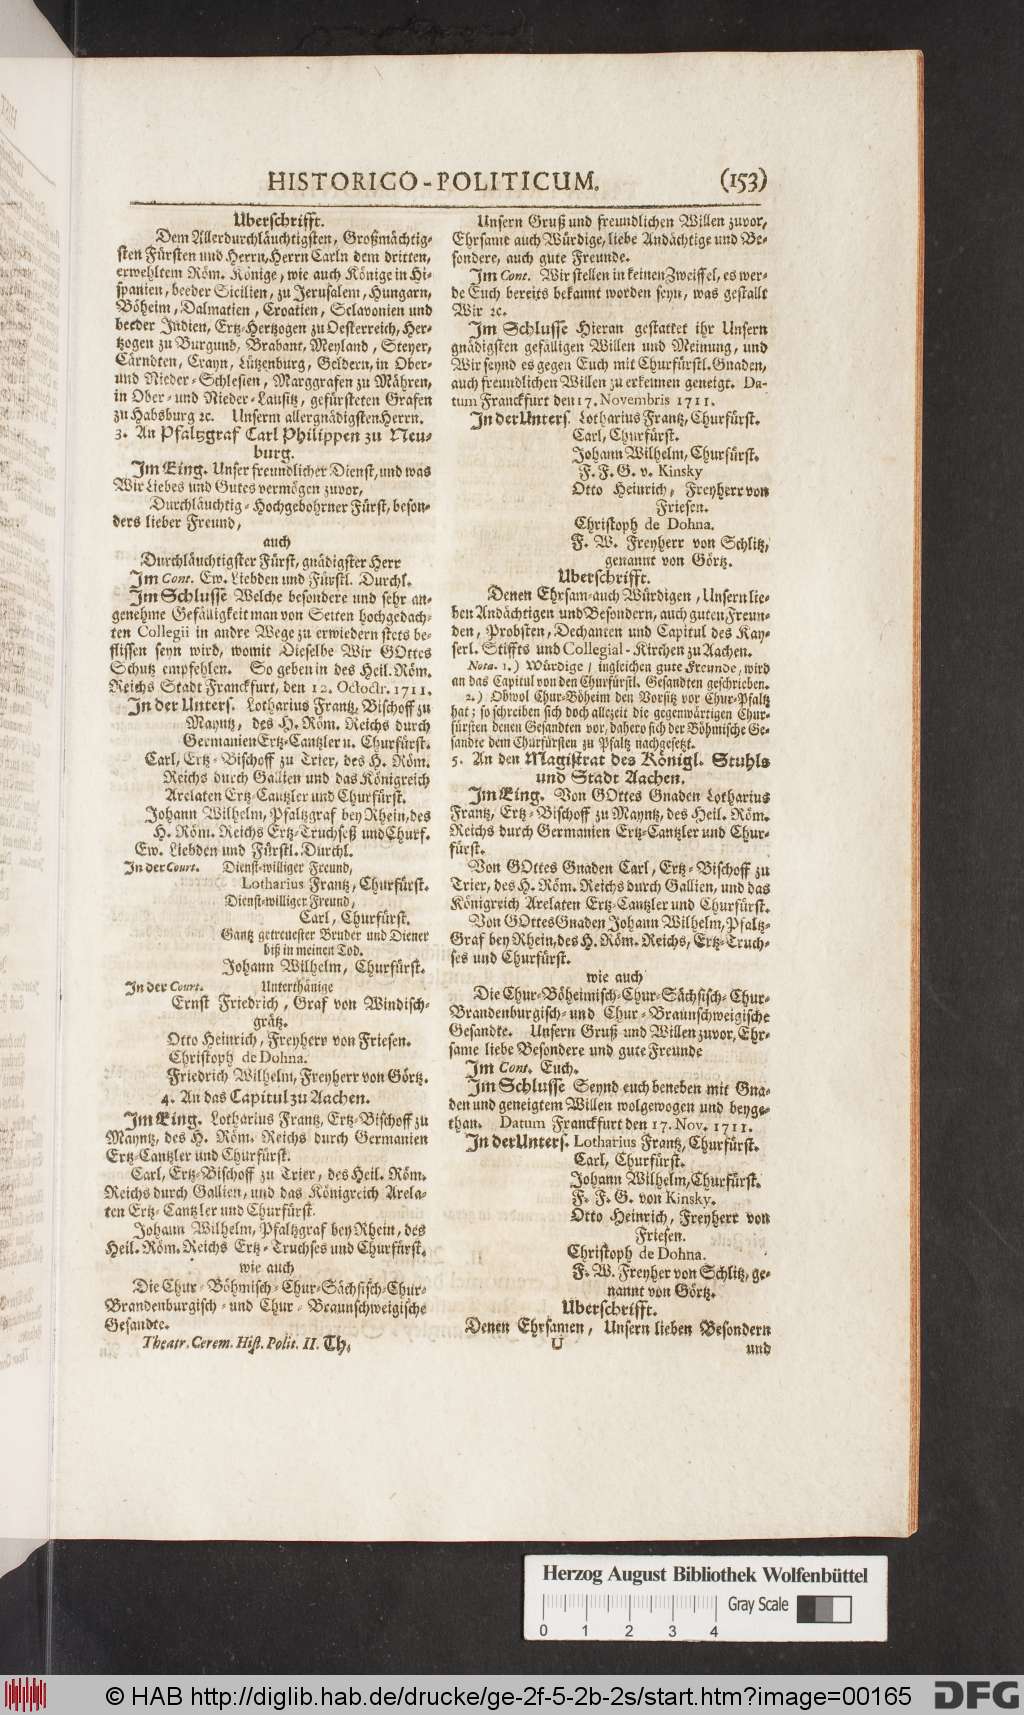 HISTORICO-POLITICUM. (153)
Uberschrifft.
Dem Allerdurchläuchtigsten, Großmächtig-
sten Fürsten und Herrn, Herrn Carln dem dritten,
erwehltem Röm. Könige, wie auch Könige in Hi-
spanien, beeder Sicilien, zu Jerusalem, Hungarn,
Böheim, Dalmatien, Croatien, Sclavonien und
beeder Indien, Ertz-Hertzogen zu Oesterreich, Her-
tzogen zu Burgund, Brabant, Meyland, Steyer,
Cärndten, Crayn, Lützenburg, Geldern, in Ober-
und Nieder-Schlesien, Marggrafen zu Mähren,
in Ober- und Nieder-Lausitz, gefürsteten Grafen
zu Habsburg ꝛc. Unserm allergnädigsten Herrn.
3. An Pfaltzgraf Carl Philippen zu Neu-
burg.
Im Eing. Unser freundlicher Dienst, und was
Wir Liebes und Gutes vermögen zuvor,
Durchläuchtig-Hochgebohrner Fürst, beson-
ders lieber Freund,
auch
Durchläuchtigster Fürst, gnädigster Herr
Im Cont. Ew. Liebden und Fürstl. Durchl.
Im Schlusse Welche besondere und sehr an-
genehme Gefälligkeit man von Seiten hochgedach-
ten Collegii in andre Wege zu erwiedern stets be-
flissen seyn wird, womit Dieselbe Wir GOttes
Schutz empfehlen. So geben in des Heil. Röm.
Reichs Stadt Franckfurt, den 12. Octoctr. 1711.
In der Unters. Lotharius Frantz, Bischoff zu
Mayntz, des H. Röm. Reichs durch
Germanien Ertz-Cantzler u. Churfürst.
Carl, Ertz-Bischoff zu Trier, des H. Röm.
Reichs durch Gallien und das Königreich
Arelaten Ertz-Cantzler und Churfürst.
Johann Wilhelm, Pfaltzgraf bey Rhein, des
H. Röm. Reichs Ertz-Truchseß und Churf.
Ew. Liebden und Fürstl. Durchl.
In der Court. Dienst-williger Freund,
Lotharius Frantz, Churfürst.
Dienst-williger Freund,
Carl, Churfürst.
Gantz getreuester Bruder und Diener
biß in meinen Tod.
Johann Wilhelm, Churfürst.
In der Court. Unterthänige
Ernst Friedrich, Graf von Windisch-
grätz.
Otto Heinrich, Freyherr von Friesen.
Christoph de Dohna.
Friedrich Wilhelm, Freyherr von Görtz.
4. An das Capitul zu Aachen.
Im Eing. Lotharius Frantz, Ertz-Bischoff zu
Mayntz, des H. Röm. Reichs durch Germanien
Ertz-Cantzler und Churfürst.
Carl, Ertz-Bischoff zu Trier, des Heil. Röm.
Reichs durch Gallien, und das Königreich Arela-
ten Ertz-Cantzler und Churfürst.
Johann Wilhelm, Pfaltzgraf bey Rhein, des
Heil. Röm. Reichs Ertz-Truchses und Churfürst,
wie auch
Die Chur-Böhmisch-Chur-Sächsisch-Chur-
Brandenburgisch- und Chur-Braunschweigische
Gesandte.
Theatr. Cerem. Hist. Polit. II. Th.
Unsern Gruß und freundlichen Willen zuvor,
Ehrsame auch Würdige, liebe Andächtige und Be-
sondere, auch gute Freunde.
Im Cont. Wir stellen in keinen Zweiffel, es wer-
de Euch bereits bekannt worden seyn, was gestallt
Wir ꝛc.
Im Schlusse Hieran gestattet ihr Unsern
gnädigsten gefälligen Willen und Meinung, und
Wir seynd es gegen Euch mit Churfürstl. Gnaden,
auch freundlichen Willen zu erkennen geneigt. Da-
tum Franckfurt den 17. Novembris 1711.
In der Unters. Lotharius Frantz, Churfürst.
Carl, Churfürst.
Johann Wilhelm, Churfürst.
F. F. G. v. Kinsky
Otto Heinrich, Freyherr von
Friesen.
Christoph de Dohna.
F. W. Freyherr von Schlitz,
genannt von Görtz.
Uberschrifft.
Denen Ehrsam-auch Würdigen, Unsern lie-
ben Andächtigen und Besondern, auch guten Freun-
den, Probsten, Dechanten und Capitul des Kay-
serl. Stiffts und Collegial-Kirchen zu Aachen.
Nota. 1.) Würdige / ingleichen gute Freunde, wird
an das Capitul von den Churfürstl. Gesandten geschrieben.
2.) Obwol Chur-Böheim den Vorsitz vor Chur-Pfaltz
hat; so schreiben sich doch allezeit die gegenwärtigen Chur-
fürsten denen Gesandten vor, dahero sich der Böhmische Ge-
sandte dem Churfürsten zu Pfaltz nachgesetzt.
5. An den Magistrat des Königl. Stuhls
und Stadt Aachen.
Im Eing. Von GOttes Gnaden Lotharius
Frantz, Ertz-Bischoff zu Mayntz, des Heil. Röm.
Reichs durch Germanien Ertz-Cantzler und Chur-
fürst.
Von GOttes Gnaden Carl, Ertz-Bischoff zu
Trier, des H. Röm. Reichs durch Gallien, und das
Königreich Arelaten Ertz-Cantzler und Churfürst.
Von GOttes Gnaden Johann Wilhelm, Pfaltz-
Graf bey Rhein, des H. Röm. Reichs, Ertz-Truch-
ses und Churfürst.
wie auch
Die Chur-Böheimisch-Chur-Sächsisch-Chur-
Brandenburgisch- und Chur-Braunschweigische
Gesandte. Unsern Gruß und Willen zuvor, Ehr-
same liebe Besondere und gute Freunde
Im Cont. Euch.
Im Schlusse Seynd euch beneben mit Gna-
den und geneigtem Willen wolgewogen und beyge-
than. Datum Franckfurt den 17. Nov. 1711.
In der Unters. Lotharius Frantz, Churfürst.
Carl, Churfürst.
Johann Wilhelm, Churfürst.
F. F. G. von Kinsky.
Otto Heinrich, Freyherr von
Friesen.
Christoph de Dohna.
F. W. Freyher von Schlitz, ge-
nannt von Görtz.
Uberschrifft.
Denen Ehrsamen, Unsern lieben Besondern
U und
Herzog August Bibliothek Wolfenbüttel
Gray Scale
0 1 2 3 4
© HAB http://diglib.hab.de/drucke/ge-2f-5-2b-2s/start.htm?image=00165
DFG